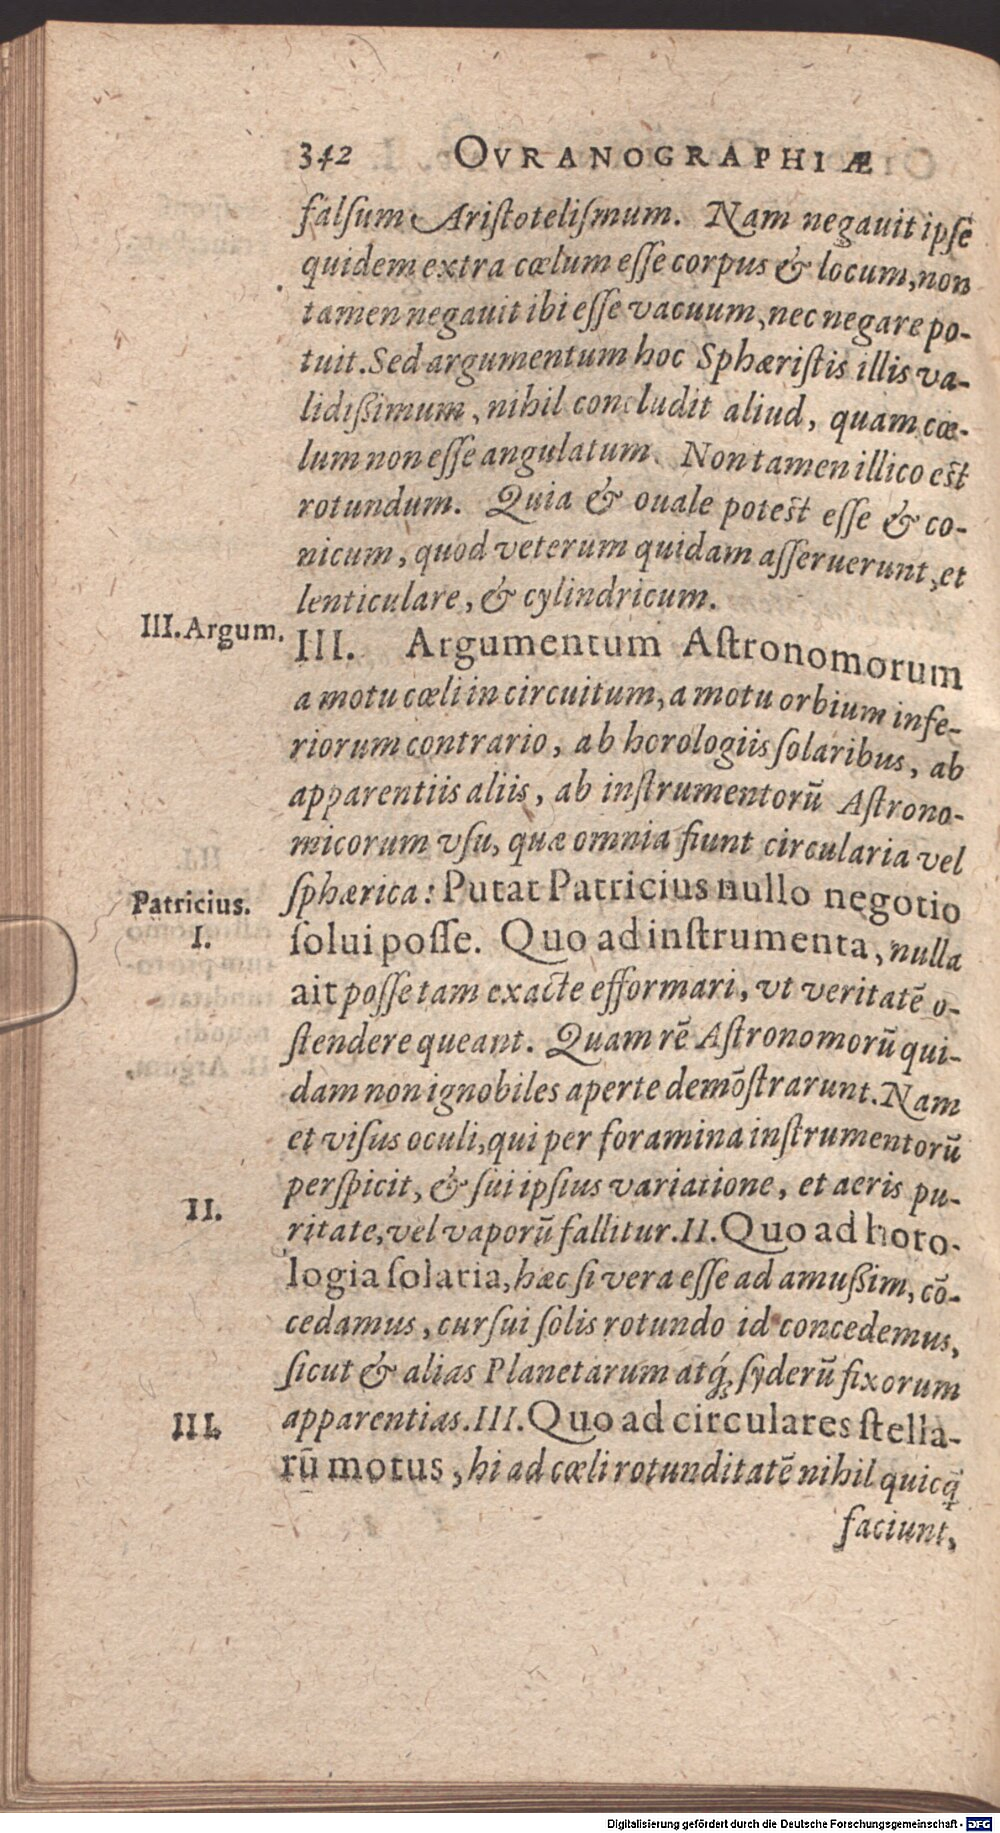 342 OVRANOGRAPHIÆ
falſum Ariſtoteliſmum. Nam negauit ipſe
quidem extra cœlum eſſe corpus & locum, non
tamen negauit ibi eſſe vacuum, nec negare po-
tuit. Sed argumentum hoc Sphæriſtis illis va-
lidißimum, nihil concludit aliud, quam cœ-
lum non eſſe angulatum. Non tamen illico eſt
rotundum. Quia & ouale poteſt eſſe & co-
nicum, quod veterum quidam aſſeruerunt, et
lenticulare, & cylindricum.
III. Argum.
III. Argumentum Aſtronomorum
a motu cœli in circuitum, a motu orbium infe-
riorum contrario, ab horologiis ſolaribus, ab
apparentiis aliis, ab inſtrumentorū Aſtrono-
micorum vſu, quæ omnia fiunt circularia vel
ſphærica: Putat Patricius nullo negotio
Patricius.
I.
ſolui poſſe. Quo ad inſtrumenta, nulla
ait poſſe tam exacte efformari, vt veritatē o-
ſtendere queant. Quam rē Aſtronomorū qui-
dam non ignobiles aperte demōſtrarunt. Nam
et viſus oculi, qui per foramina inſtrumentorū
perſpicit, & ſui ipſius variatione, et aeris pu-
II.
ritate, vel vaporū fallitur. II. Quo ad horo-
logia ſolaria, hæc ſi vera eſſe ad amußim, cō-
cedamus, curſui ſolis rotundo id concedemus,
ſicut & alias Planetarum atq́; ſyderū fixorum
III.
apparentias. III. Quo ad circulares ſtella-
rū motus, hi ad cœli rotunditatē nihil quicq̄
faciunt,
Digitalisierung gefördert durch die Deutsche Forschungsgemeinschaft - DFG